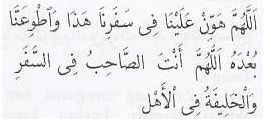 اَللّٰهُمَّ هَوِّنْ عَلَيْنَا فِى سَفَرِنَا هَذَا وَاَطْوِعَنَّا
بُعْدَهُ اَللّٰهُمَّ اَنْتَ الصَّاحِبُ فِى السَّفَرِ
وَالْخَلِيْفَةُ فِى اْلاَهْلِ